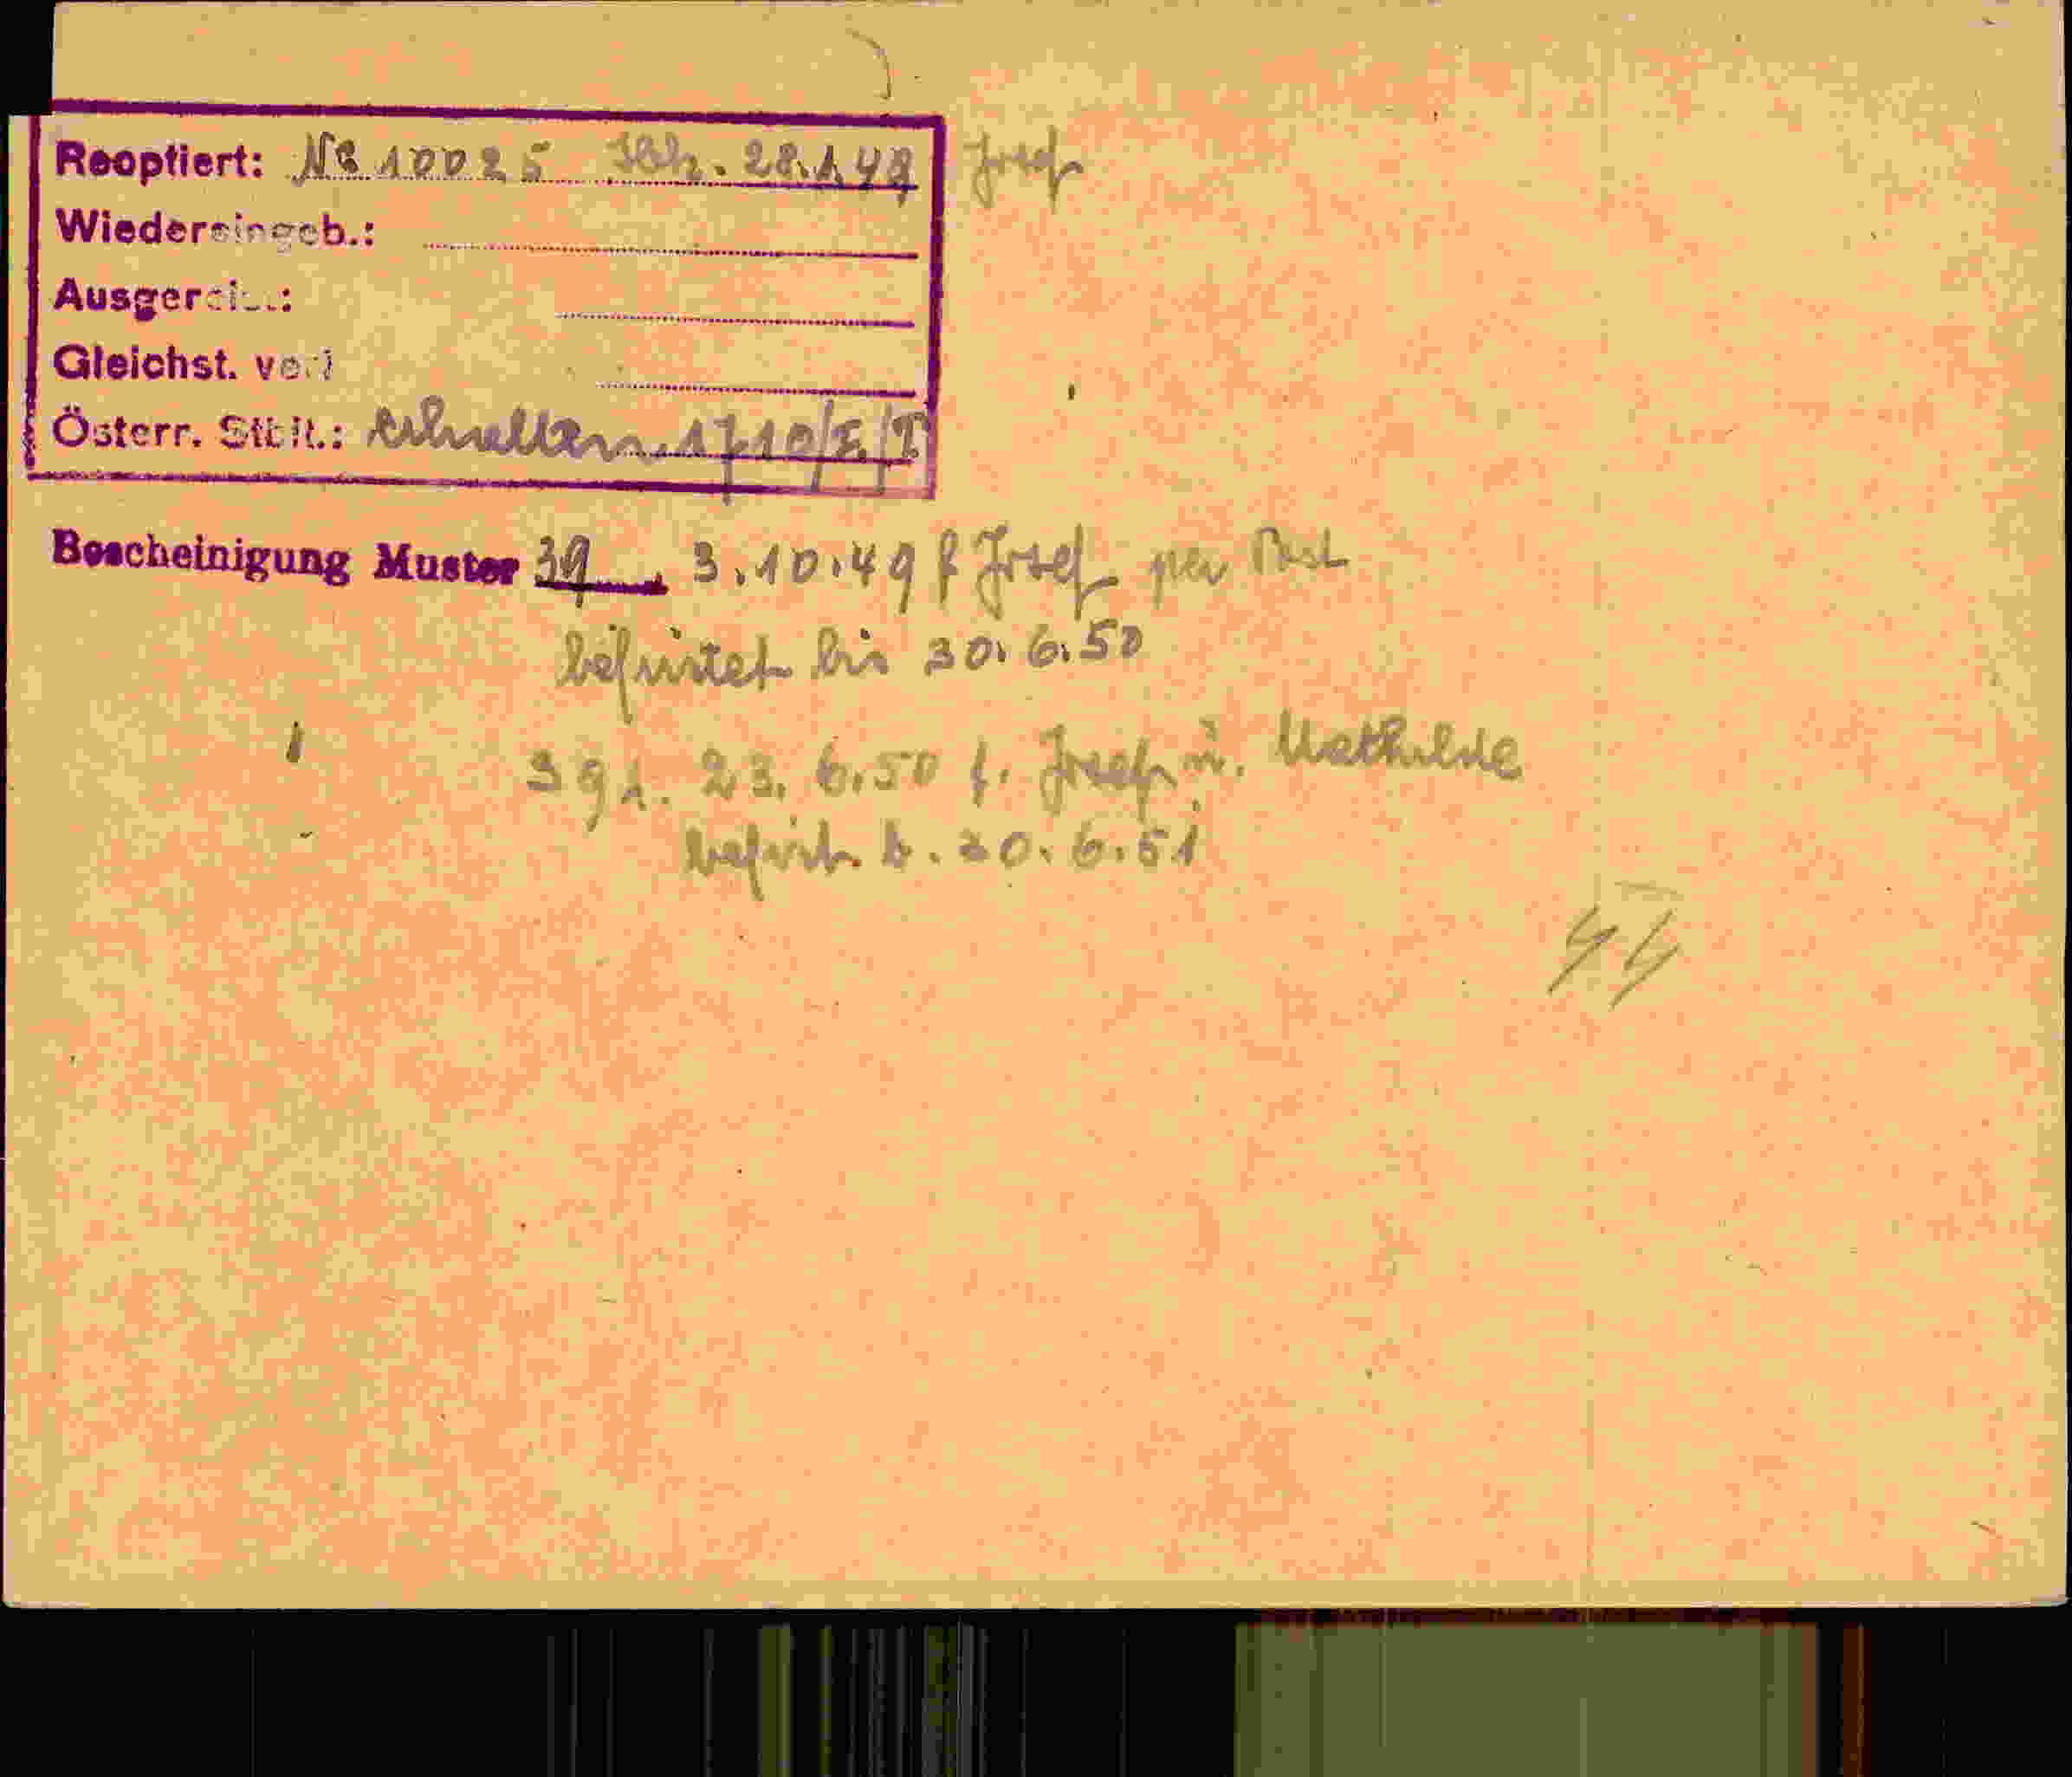 Reoptiert: No 10025 28.1.49 Josef
Wiedereingeb.:
Ausgereist:
Gleichst. verl
Österr. Stbit.: erhalten 1710/E/T
Bescheinigung Muster 39 3.10.49 f Josef per Post
befristet bis 30.6.50
39 1. 23.6.50 f. Josef u. Mathilde
befrist. b. 30.6.51